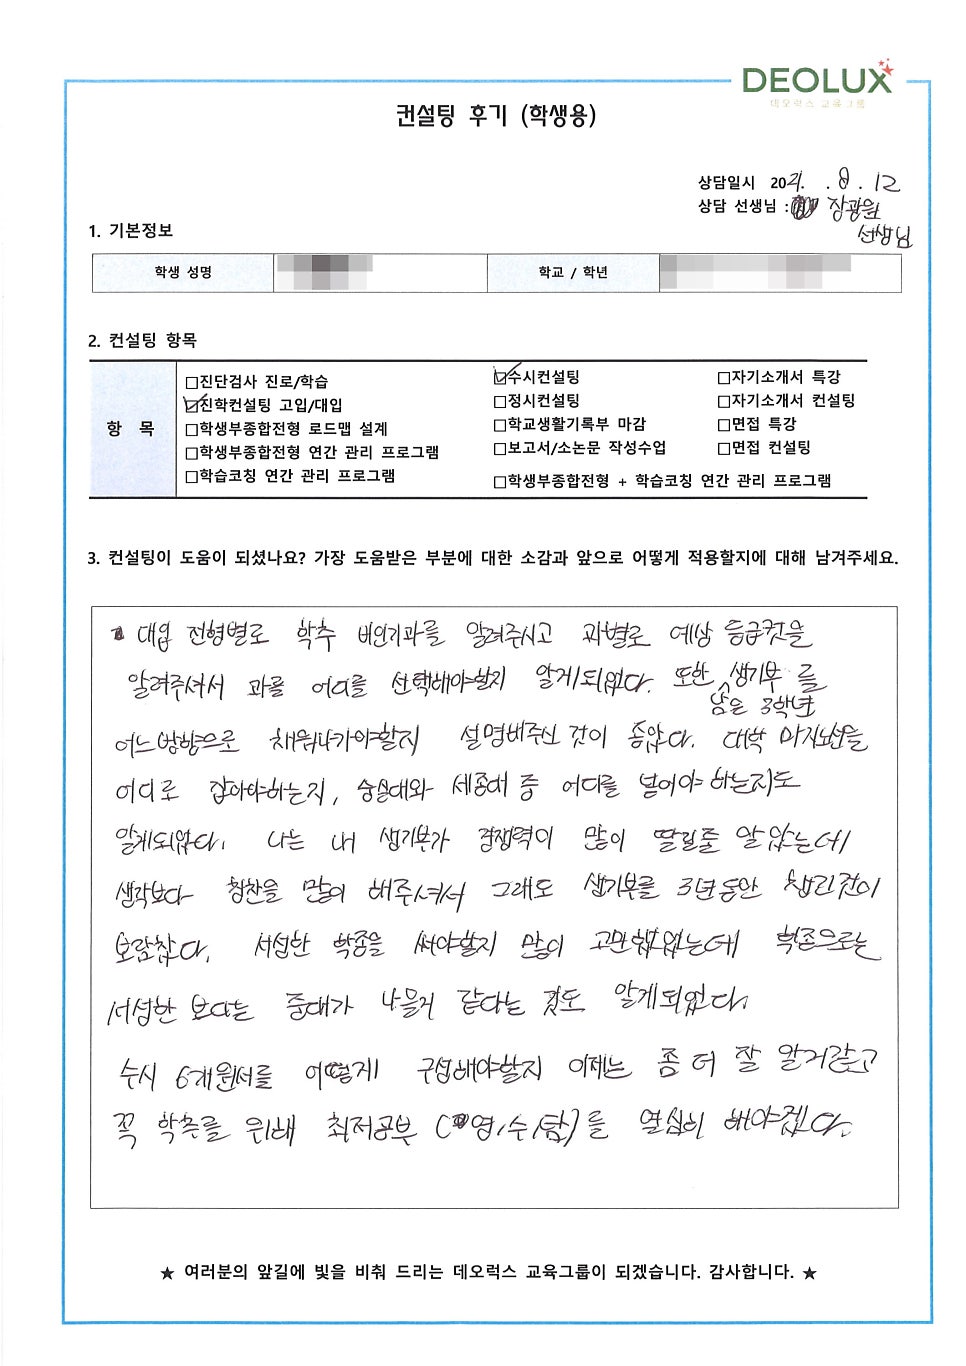 DEOLUX
데오럭스 교육그룹
컨설팅 후기 (학생용)
상담일시 2021. . 8 . 12
상담 선생님 : 장광원
선생님
1. 기본정보
학생 성명
학교 / 학년
2. 컨설팅 항목
항 목
□진단검사 진로/학습
☑진학컨설팅 고입/대입
□학생부종합전형 로드맵 설계
□학생부종합전형 연간 관리 프로그램
□학습코칭 연간 관리 프로그램
☑수시컨설팅
□정시컨설팅
□학교생활기록부 마감
□보고서/소논문 작성수업
□학생부종합전형 + 학습코칭 연간 관리 프로그램
□자기소개서 특강
□자기소개서 컨설팅
□면접 특강
□면접 컨설팅
3. 컨설팅이 도움이 되셨나요? 가장 도움받은 부분에 대한 소감과 앞으로 어떻게 적용할지에 대해 남겨주세요.
대입 전형별로 학추 비인기과를 알려주시고 과별로 예상 등급컷을
알려주셔서 과를 어디를 선택해야할지 알게되었다. 또한 남은 3학년 생기부를
어느방향으로 채워나가야할지 설명해주신 것이 좋았다. 대학 마지노선을
어디로 잡아야하는지, 숭실대와 세종대 중 어디를 넣어야 하는지도
알게되었다. 나는 내 생기부가 경쟁력이 많이 딸릴줄 알았는데
생각보다 칭찬을 많이 해주셔서 그래도 생기부를 3년동안 챙긴것이
보람찼다. 서성한 학종을 써야할지 많이 고민했었는데 학종으로는
서성한 보다는 중대가 나을거 같다는 것도 알게되었다.
수시 6개원서를 어떻게 구성해야할지 이제는 좀 더 잘 알거같고
꼭 학추를 위해 최저공부 (영/수/탐)를 열심히 해야겠다.
★ 여러분의 앞길에 빛을 비춰 드리는 데오럭스 교육그룹이 되겠습니다. 감사합니다. ★